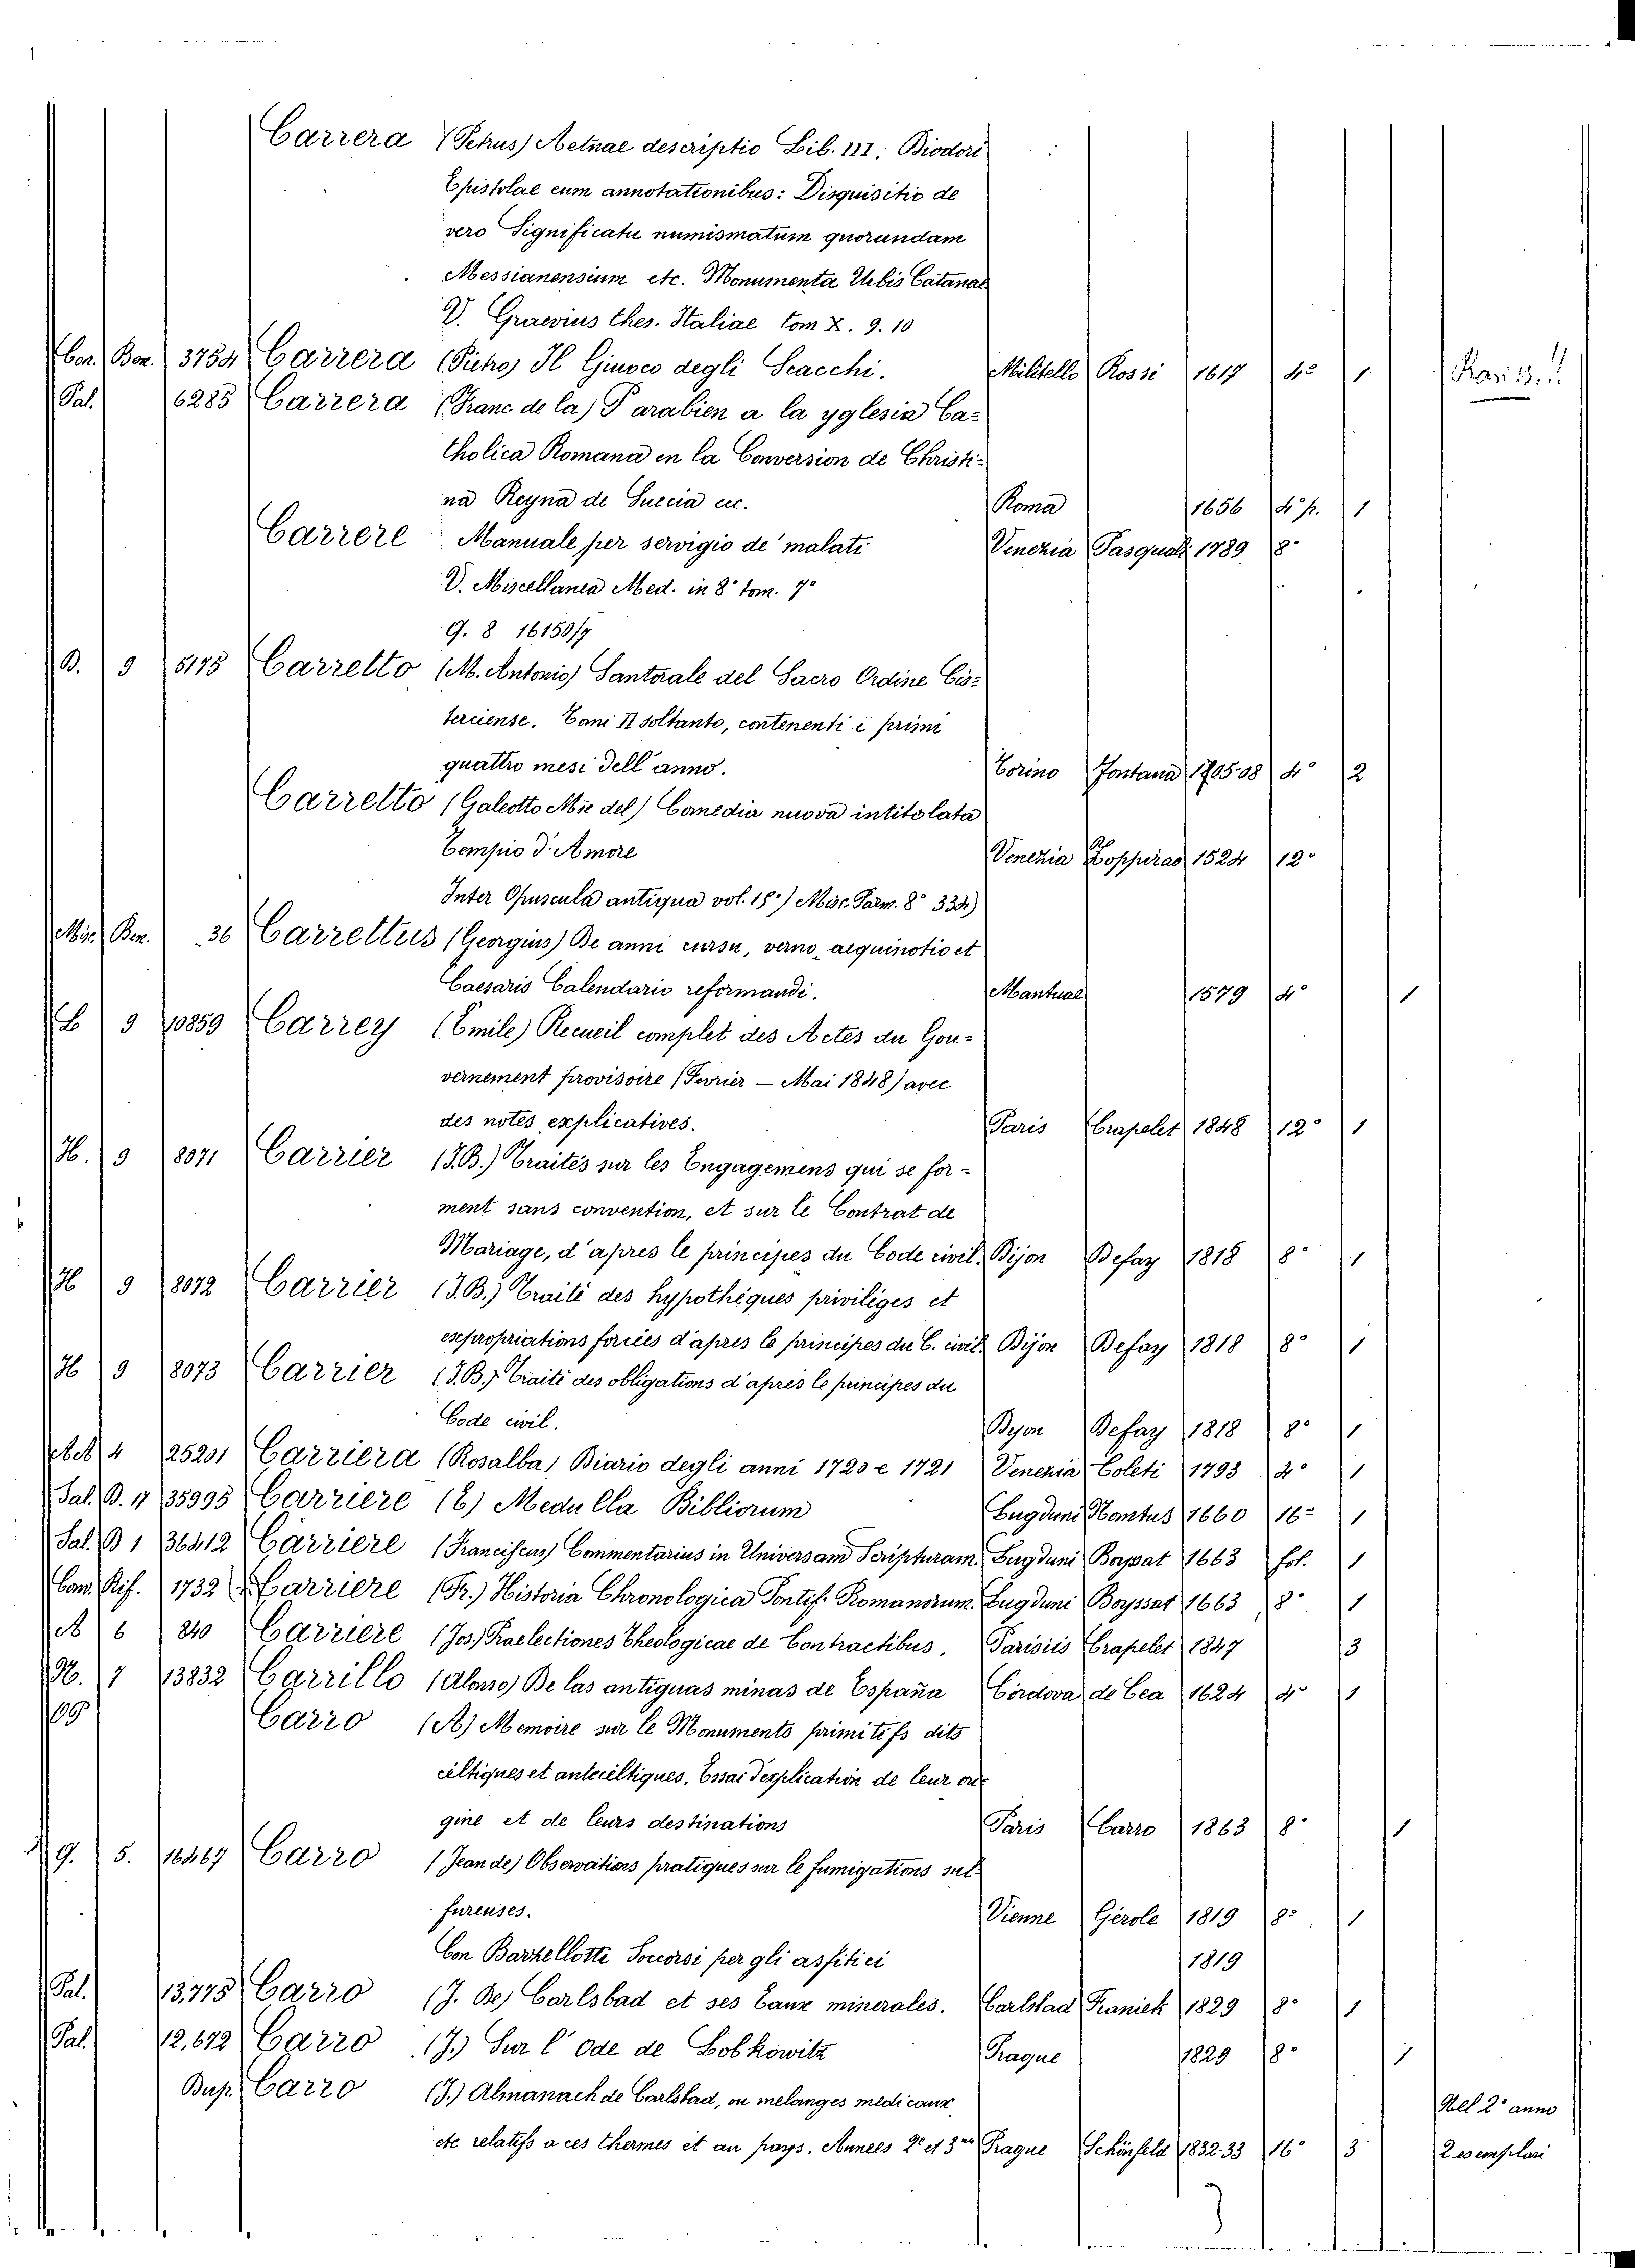 Carrera (Petrus) Aetnae descriptio Lib. III; Diodori
Epistolae cum annotationibus: Disquisitio de
vero Significatu numismatum quorundam
Messianensium etc. Monumenta Urbis Catanae
V. Graevius thes. Italiae tom X. 9. 10
Cor. Bon. 3754 Carrera (Pietro) Il Giuoco degli Scacchi. Militello Rossi 1617 4° 1
Pal. 6285 Carrera (Franc de la) Parabien a la yglesia Ca=
tholica Romana en la Conversion de Christi=
na Reyna de Suecia ec. Roma 1656 4° p. 1
Carrere Manuale per servigio de' malati Venezia Pasquali 1789 8°
V. Miscellanea Med. in 8° tom. 7°
9. 8 16150/7
B. 9 5175 Carretto (M. Antonio) Santorale del Sacro Ordine Cis=
terciense. Tomi II soltanto, contenenti i primi
quattro mesi dell'anno. Torino Fontana 1705-08 4° 2
Carretto (Galeotto Mse del) Comedia nuova intitolata
Tempio d'Amore Venezia Zoppino 1524 12°
Inter Opuscula antiqua vol. 15°) Misc. Parm. 8° 334)
Misc. Ben. 36 Carrettus (Georgius) De anni cursu, verno aequinotio et
Caesaris Calendario reformandi. Mantuae 1579 4° 1
L 9 10859 Carrey (Emile) Recueil complet des Actes du Gou=
vernement provisoire (Fevrier — Mai 1848) avec
des notes explicatives. Paris Crapelet 1848 12° 1
H. 9 8071 Carrier (J.B.) Traités sur les Engagemens qui se for=
ment sans convention, et sur le Contrat de
Mariage, d'apres le principes du Code civil. Dijon Defay 1818 8° 1
H 9 8072 Carrier (J.B.) Traité des hypothéques priviliges et
expropriations forcées d'apres le principes du C. civil. Dijon Defay 1818 8° 1
H 9 8073 Carrier (J.B.) Traité des obligations d'apres le principes du
Code civil. Dyon Defay 1818 8° 1
4 25201 Carriera (Rosalba) Diario degli anni 1720 e 1721 Venezia Coleti 1793 4° 1
Sal. B. 4 35995 Carriere (E) Medulla Bibliorum Lugduni 1660 16° 1
Sal. B 1 36412 Carriere (Franciscus) Commentarius in Universam Scripturam. Lugduni Boyssat 1663 fol. 1
Com. Rif. 1732 Carriere (Fr.) Historia Chronologica Pontif. Romanorum. Lugduni Boyssat 1663 8° 1
A 6 840 Carriere (Jos.) Praelectiones Theologicae de Contractibus. Parisiis Crapelet 1847 3
N. 7 13832 Carrillo (Alonso) De las antiguas minas de España Córdova de Cea 1624 4° 1
Carro (A) Memoire sur le Monuments primitifs dits
céltiques et antecéltiques. Essai d'esplication de leur ori=
gine et de leurs destinations Paris Carro 1863 8° 1
9. 5. 16467 Carro (Jean de) Observations pratiques sur le fumigations sul=
fureuses. Vienne Gérole 1819 8° 1
Con Barzellotti Soccorsi per gli asfitici 1819
Pal. 13,775 Carro (J. De) Carlsbad et ses Eaux minerales. Carlsbad Franieck 1829 8° 1
Pal. 12,672 Carro (J.) Sur l'ode de Lobkowitz Prague 1829 8° 1
Dup. Carro (J.) Almanach de Carlsbad, ou melanges medicaux
etc relatifs a ces thermes et au pays. Annees 2e et 3me Prague Schönfeld 1832-33 16° 3
Del 2° anno
2 esemplari